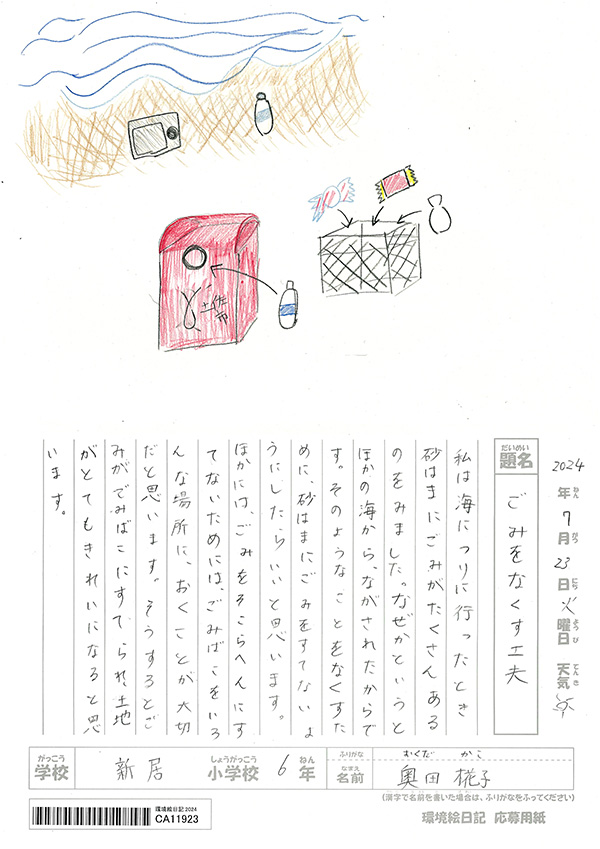 土佐市
2024年7月23日火曜日 天気
ねん がつ にち ようび てんき
だいめい
題名
ごみをなくす工夫
私は海につりに行ったとき
砂はまにごみがたくさんある
のをみました。なぜかというと
ほかの海から、ながされたからで
す。そのようなことをなくすた
めに、砂はまにごみをすてないよ
うにしたらいいと思います。
ほかには、ごみをそこらへんにす
てないためには、ごみばこをいろ
んな場所に、おくことが大切
だと思います。そうするとご
みがでみばこにすてられ、土地
がとてもきれいになると思
います。
がっこう
学校
新居
しょうがっこう
小学校
6
ねん
年
ふりがな
おくだ かこ
なまえ
名前
奥田 椛子
(漢字で名前を書いた場合は、ふりがなをふってください)
環境絵日記2024
CA11923
環境絵日記 応募用紙